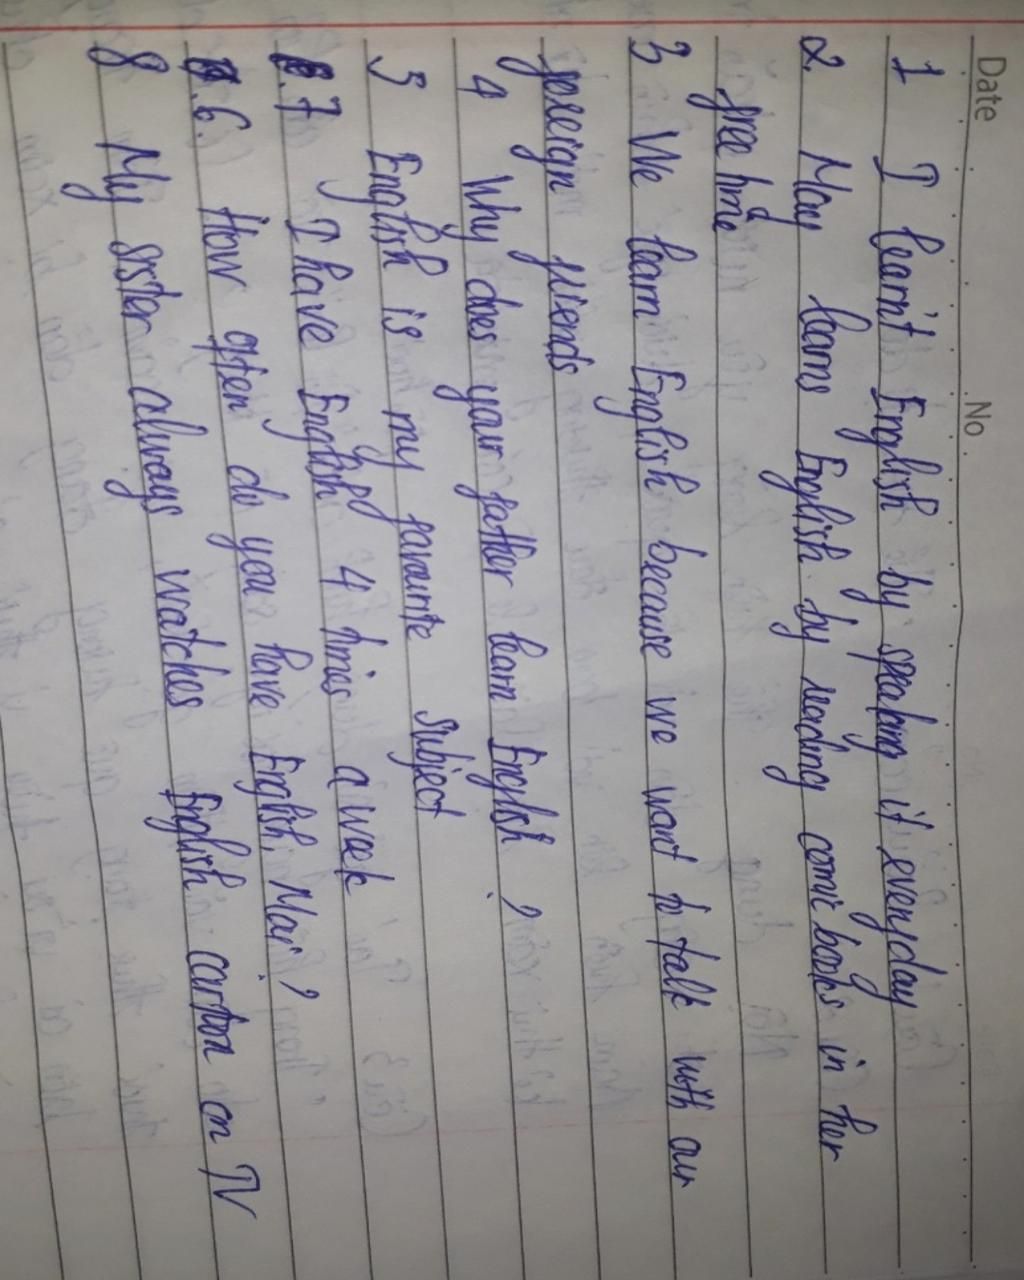 Date No
1 I learn't English by speaking it everyday
2. May learns English by reading comic books in her
free time
3 We learn English because we want to talk with our
foreign friends
4 Why does your father learn English ?
5 English is my favourite subject
7 I have English 4 times a week
6. How often do you have English, Mai ?
8 My sister always watches English cartoon on TV